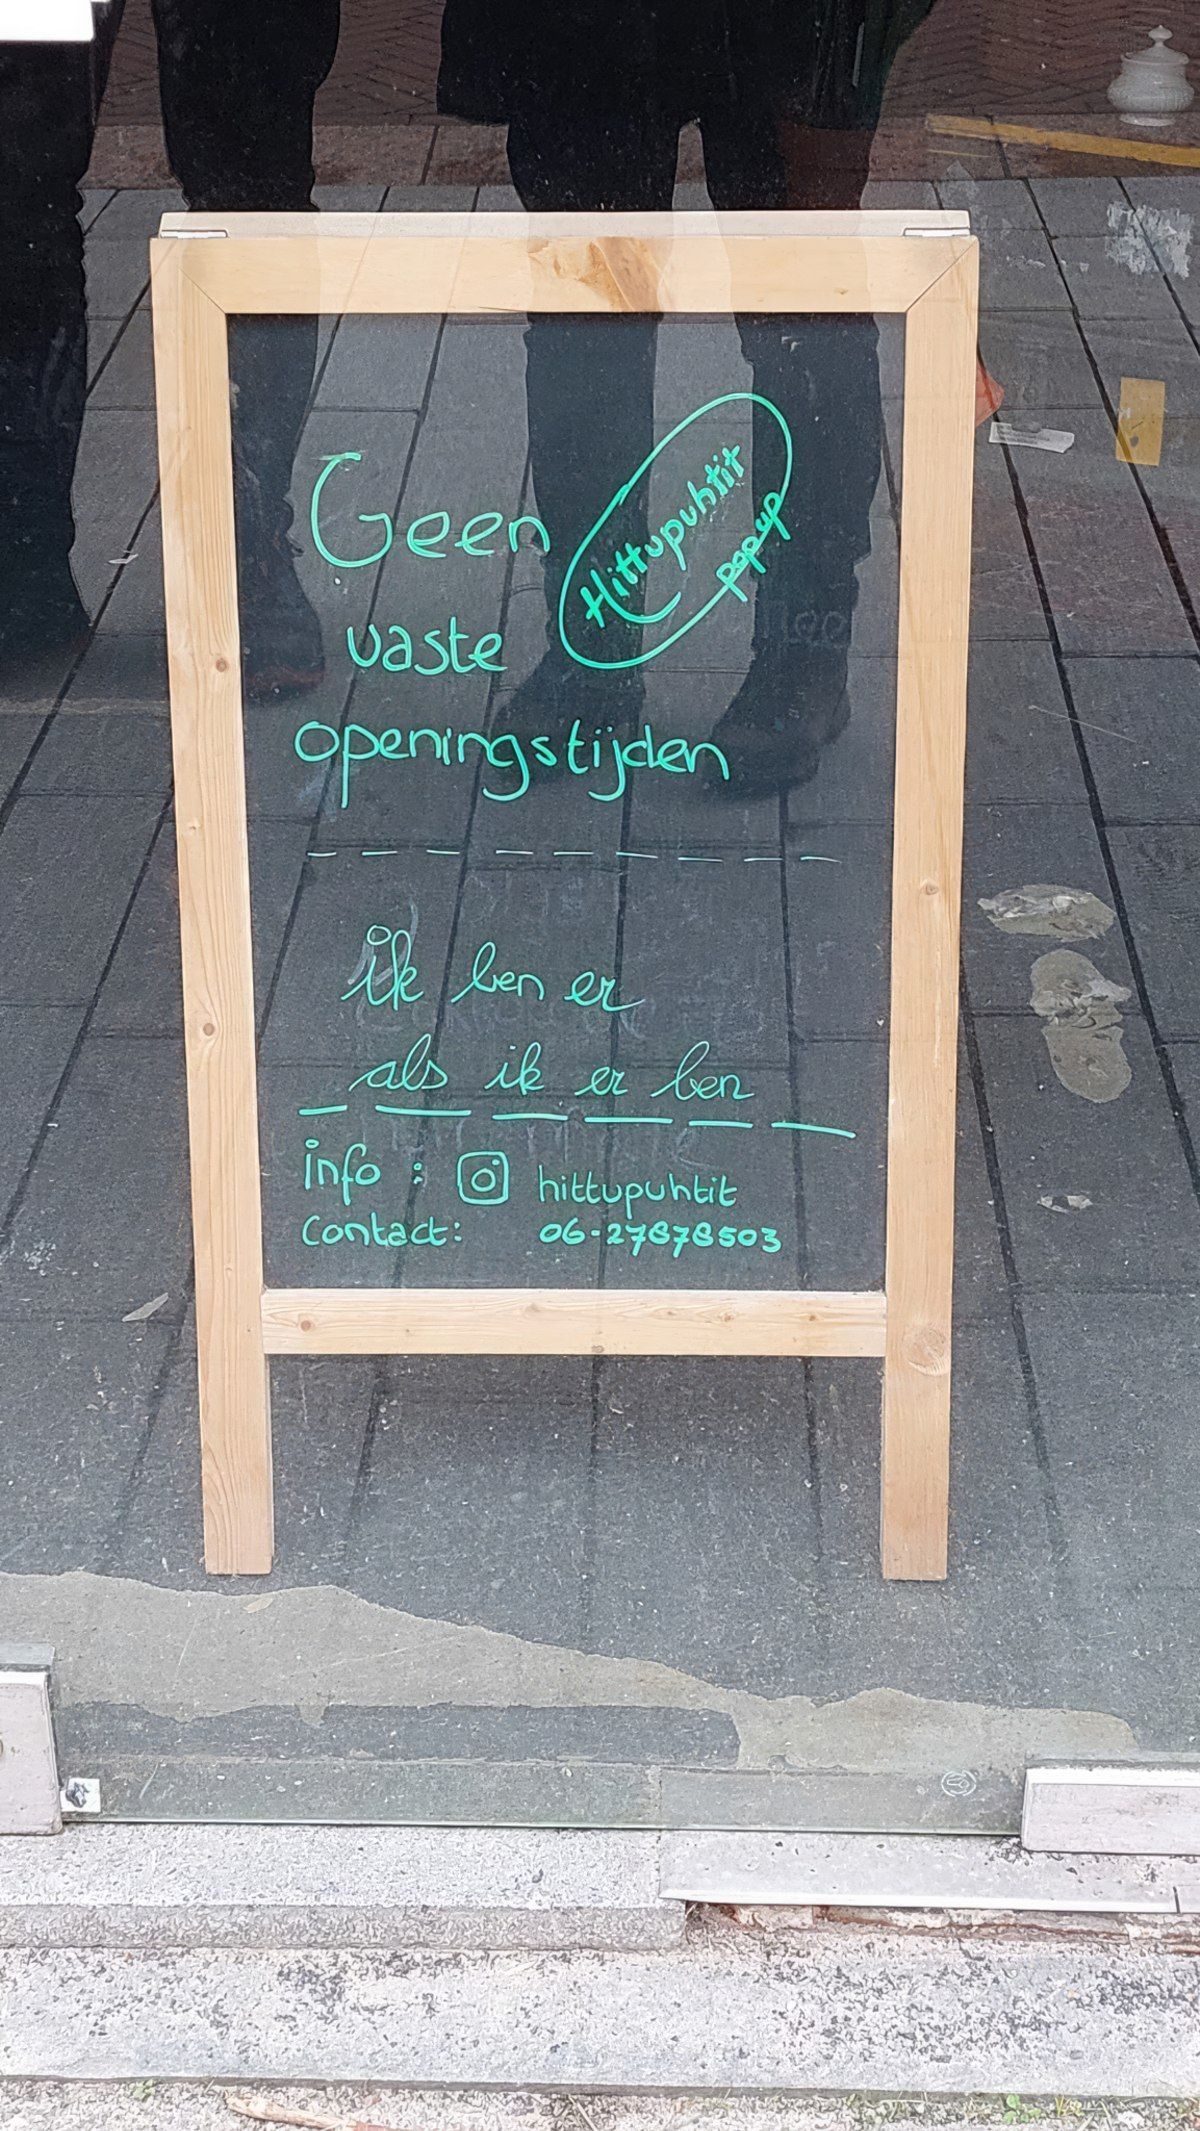 Geen
Hittupuhtit
popup
vaste
openingstijden
ik ben er
als ik er ben
info : hittupuhtit
Contact: 06-27878503